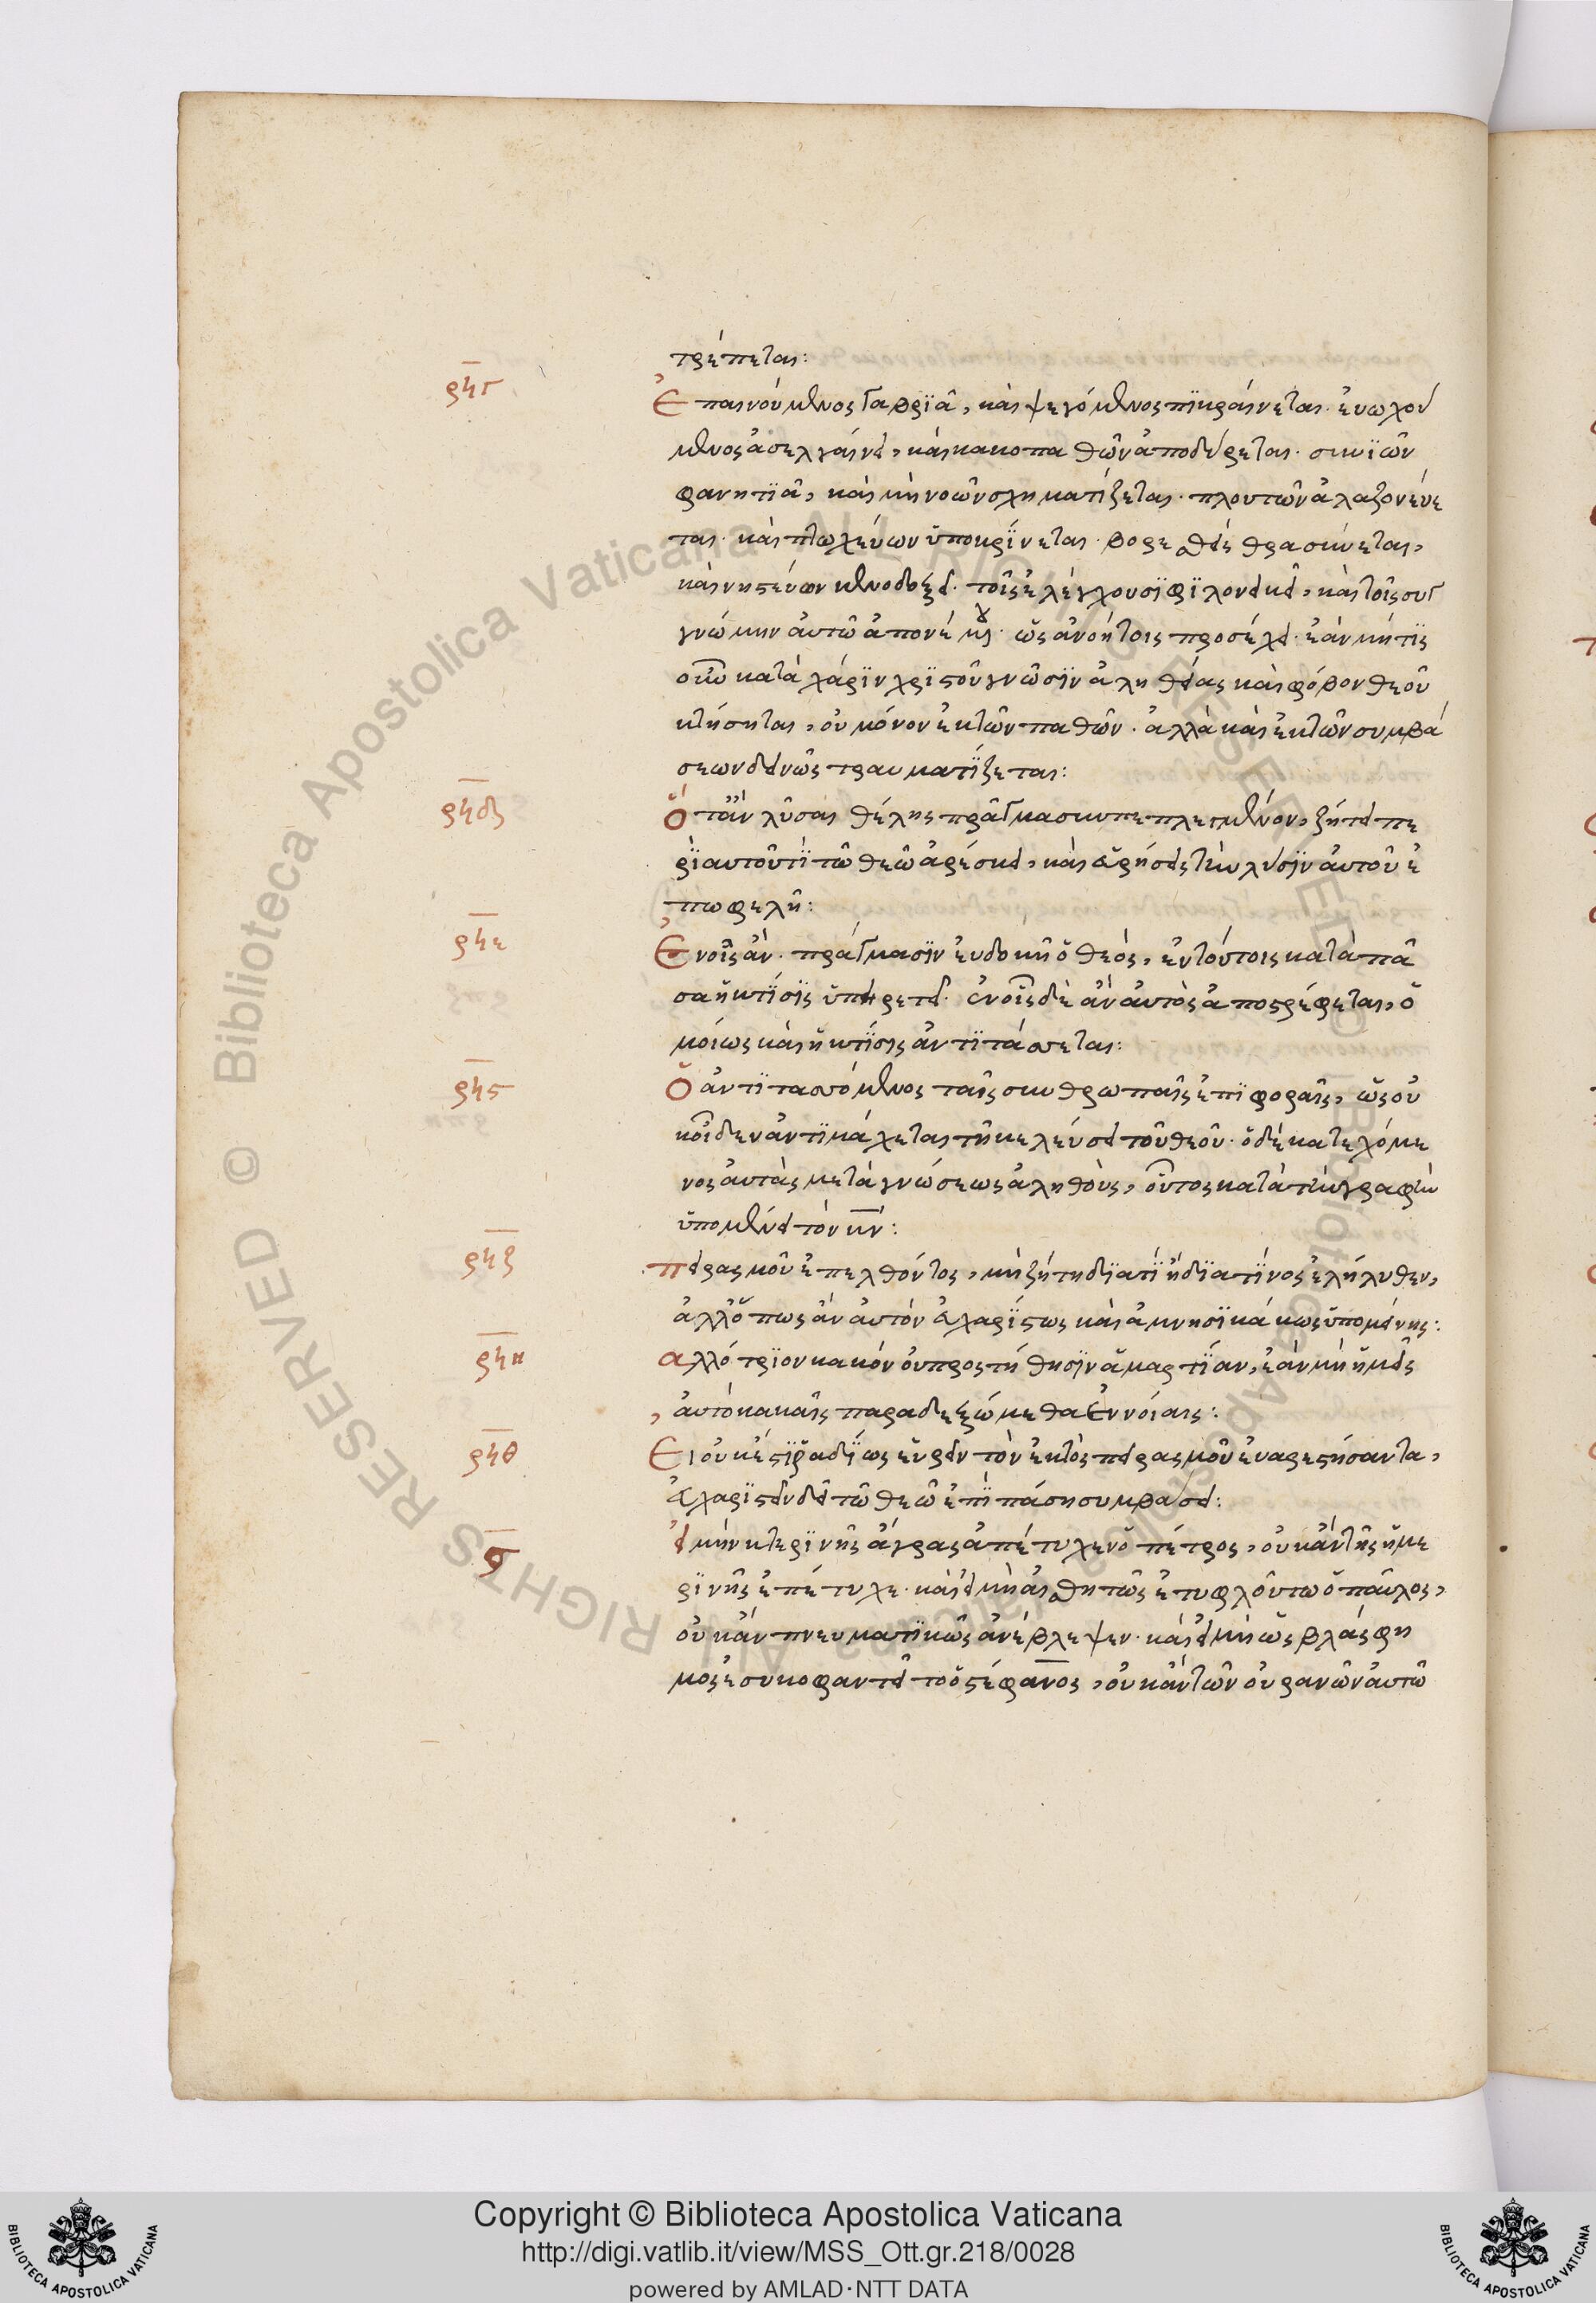 τρέπεται:
ϟγ
Ἐπαινούμενος γαυριᾶ, καὶ ψεγόμενος πικραίνεται· εὐωχού
μενος ἀσελγαίνει, καὶ κακοπαθῶν ἀποδύρεται· συνϊῶν
φανητιᾶ, καὶ μὴ νοῶν σχηματίζεται· πλουτῶν ἀλαζονεύε
ται· καὶ πτωχεύων ὑποκρίνεται· βορεσθεὶ θρασύνεται,
καὶ νηστεύων κενοδοξεῖ· τοῖς ἐλέγχουσι φιλονεικεῖ, καὶ τοῖς συγ
γνώμην αὐτῶ ἀπονέμου· ὡς ἀνοήτοις προσέχει· ἐὰν μή τις
οὖν κατὰ χάριν χριστοῦ γνῶσιν ἀληθείας καὶ φόβον θεοῦ
κτήσηται, οὐ μόνον ἐκ τῶν παθῶν· ἀλλὰ καὶ ἐκ τῶν συμβά
σεων δεινῶς τραυματίζεται:
ϟδ
Ὅταν λῦσαι θέλης πρᾶγμα συμπεπλεγμένον, ζήτει πε
ρὶ αὐτοῦ τί τῶ θεῶ ἀρέσκει, καὶ εὑρήσεις τὴν λύσιν αὐτοῦ ἐ
πωφελῆ:
ϟε
Ἐν οἷς ἂν· πράγμασιν εὐδοκῆ ὁ θεός, ἐν τούτοις κατὰ πᾶ
σα ἡ κτίσις ὑπηρετεῖ· ἐν οἷς δὲ ἂν αὐτὸς ἀποστρέφεται, ὁ
μοίως καὶ ἡ κτίσις ἀντιτάσσεται:
ϟϛ
Ὁ ἀντιτασσόμενος ταῖς σκυθρωπαῖς ἐπιφοραῖς, ὡς οὐ
κ οἶδεν ἀντιμάχεται τῆ κελεύσει τοῦ θεοῦ· ὁ δὲ κατεχόμε
νος αὐτὰς μετὰ γνώσεως ἀληθοὺς, οὗτος κατὰ τὴν γραφὴν
ὑπομένει τὸν κν:
ϟζ
πειρασμοῦ ἐπελθόντος, μὴ ζήτη διατί ἢ διὰ τίνος ἐλήλυθεν,
ἀλλ' ὅπως ἂν αὐτὸν εὐχαρίστως καὶ ἀμνησικάκως ὑπομείνης:
ϟη
αλλότριον κακὸν οὐ προστήθησιν ἁμαρτίαν, ἐὰν μὴ ἡμεῖς
αὐτὸ κακαῖς παραδεξώμεθα ἐννοίαις:
ϟθ
Ει οὐκ ἔστι ῥαδίως εὑρεῖν τὸν ἐκτὸς πειρασμοῦ εὐαρεστήσαντα,
εὐχαριστεῖν δεῖ τῶ θεῶ ἐπὶ πάση συμβάσει:
σ
εἰ μὴν κτερινῆς ἄγρας ἀπέτυχεν ὁ πέτρος, οὐκ ἂν τῆς ἡμε
ρινῆς ἐπέτυχε· καὶ εἰ μὴ αἰσθητῶς ἐτυφλοῦτω ὁ παῦλος,
οὐκ ἂν πνευματικῶς ἀνέβλεψεν· καὶ εἰ μὴ ὡς βλάσφη
μος ἐσυκοφαντεῖτο ὁ στέφανος, οὐκ ἂν τῶν οὐρανῶν αὐτῶ
Copyright © Biblioteca Apostolica Vaticana
http://digi.vatlib.it/view/MSS_Ott.gr.218/0028
powered by AMLAD·NTT DATA